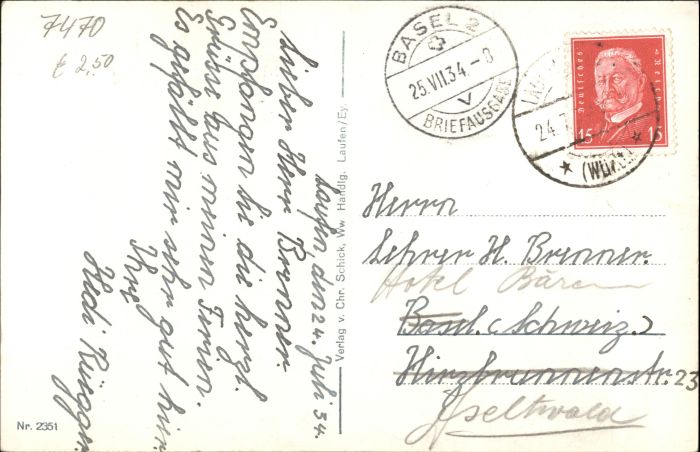 7470
£ 2,50
Laufen, den 24. Juli 34.
Lieber Herr Brenner.
Empfangen Sie die herzl.
Grüsse aus meinen Ferien.
Es gefällt mir sehr gut hier.
Ihre
Hedi
Nr. 2351
Verlag v. Chr. Schick, Ww. Handlg. Laufen/Ey.
BASEL 2
25.VII.34.-8
V
BRIEFAUSGABE
LAU
24.7
(WÜ
Deutsches Reich
15 15
Herrn
Lehrer H. Brenner.
Hotel Bären
Basel. (Schweiz.)
Hirzbrunnenstr. 23
Iseltwald